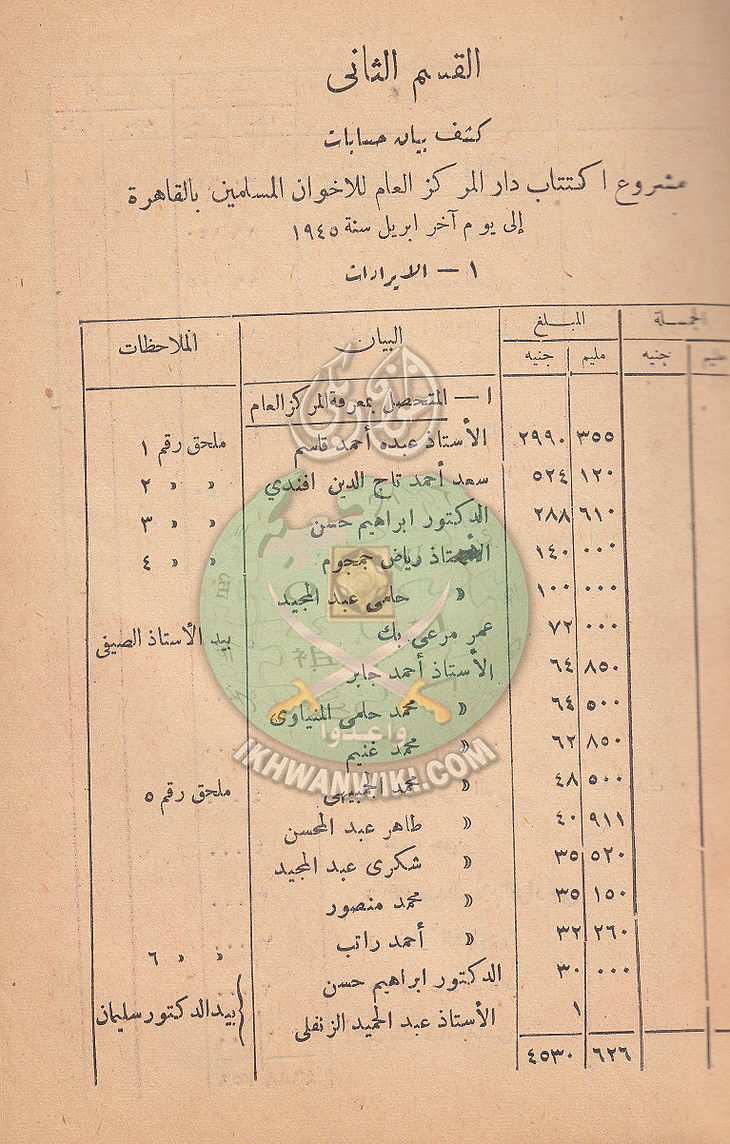 القسم الثانى
كشف بيان حسابات
مشروع اكتتاب دار المركز العام للاخوان المسلمين بالقاهرة
إلى يوم آخر ابريل سنة ١٩٤٥
١ — الايرادات
الجملة المبلغ البيان الملاحظات
مليم جنيه مليم جنيه
ا — المتحصل بمعرفة المركز العام
٣٥٥ ٢٩٩٠ الأستاذ عبده أحمد قاسم ملحق رقم ١
١٢٠ ٥٢٤ سعد أحمد تاج الدين افندي » » ٢
٦١٠ ٢٨٨ الدكتور ابراهيم حسن » » ٣
٠٠٠ ١٤٠ الأستاذ رياض جمجوم » » ٤
٠٠٠ ١٠٠ » حلمى عبد المجيد
٠٠٠ ٧٢ عمر مرعى بك بيد الأستاذ الصيفى
٨٥٠ ٦٤ الأستاذ أحمد جابر
٥٠٠ ٦٤ » محمد حلمى المنياوى
٨٥٠ ٦٢ » محمد غنيم
٥٠٠ ٤٨ » محمد ملحق رقم ٥
٩١١ ٤٠ » طاهر عبد المحسن
٥٢٠ ٣٥ » شكرى عبد المجيد
١٥٠ ٣٥ » محمد منصور
٢٦٠ ٣٢ » أحمد راتب » » ٦
٠٠٠ ٣٠ الدكتور ابراهيم حسن
١ الأستاذ عبد الحميد الزنفلى } بيد الدكتور سليمان
٦٢٦ ٤٥٣٠
واعدوا
IKHWANWIKI.COM